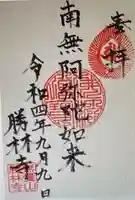 奉拝
南無阿弥陀如来
令和四年九月九日
勝林寺